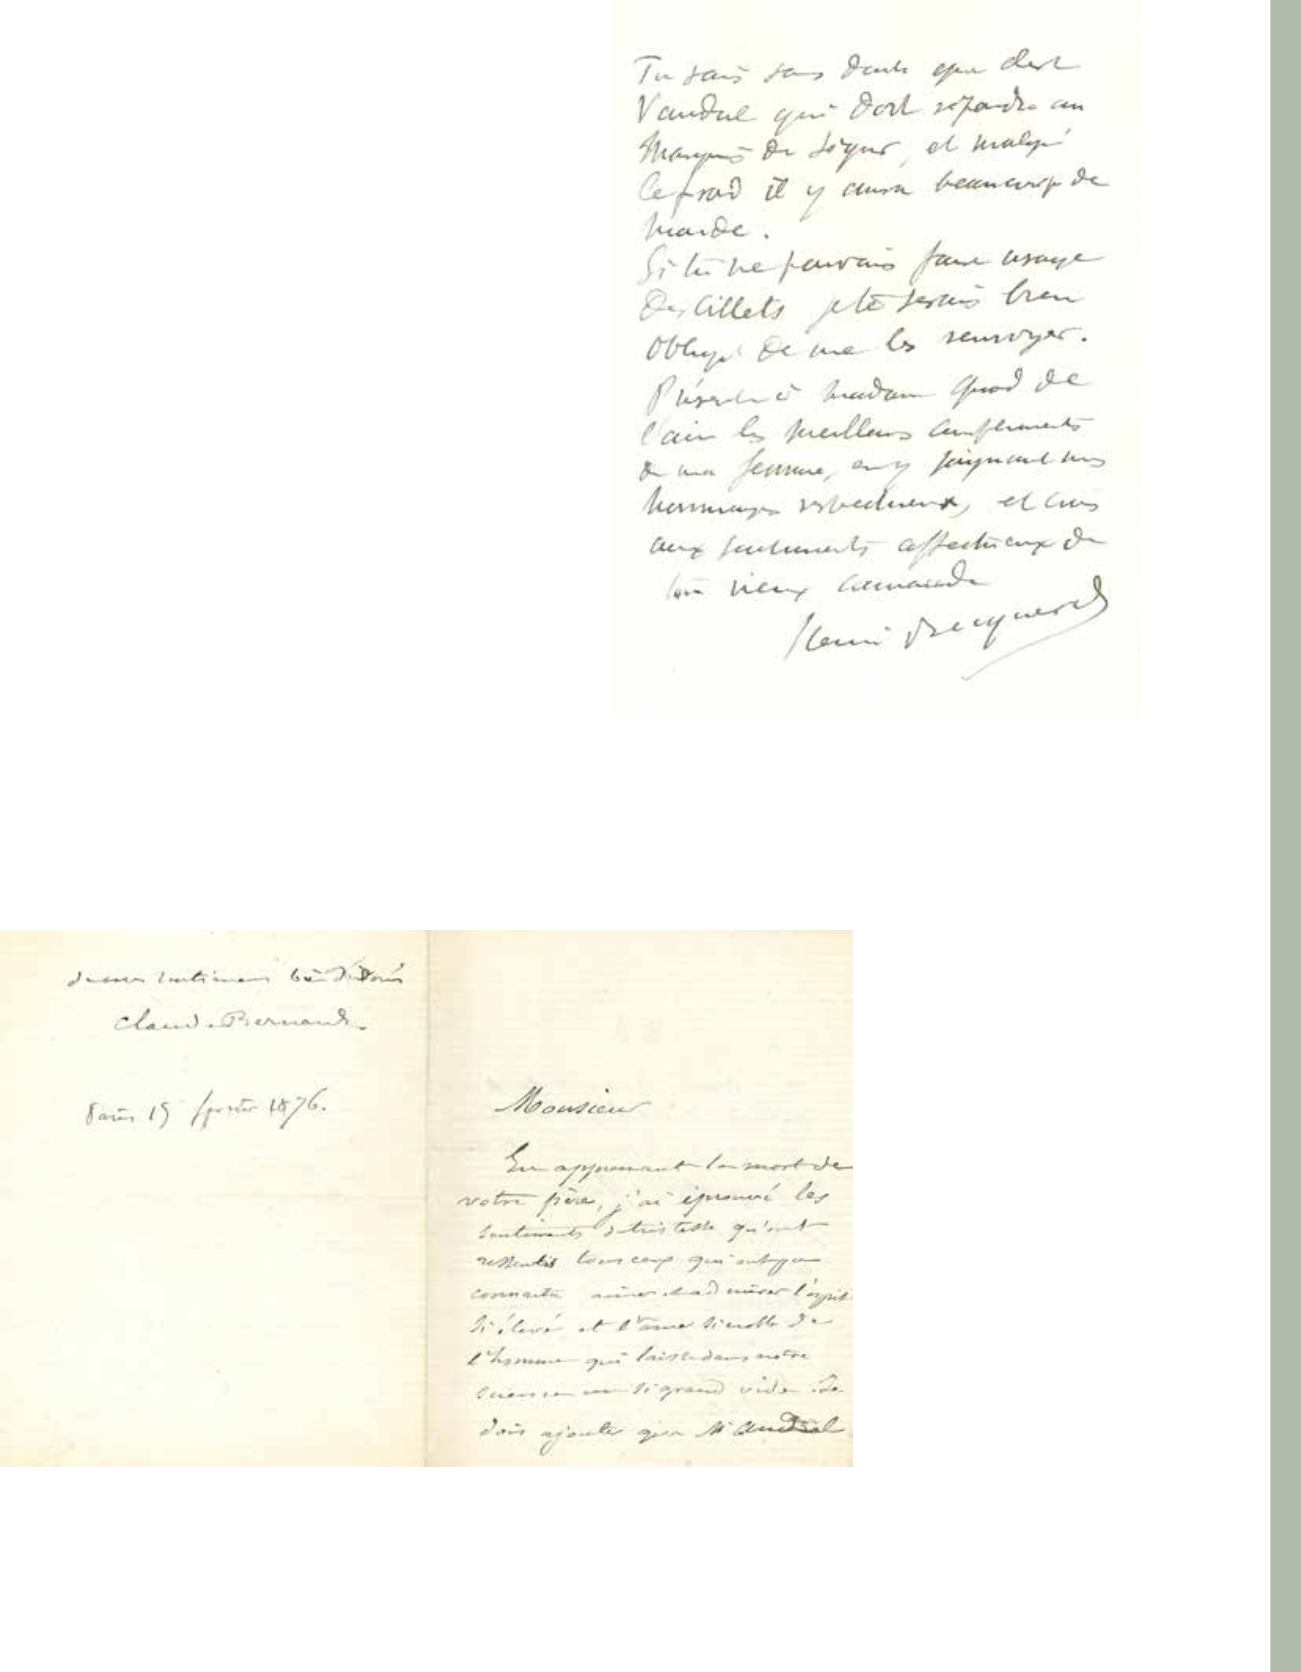 Tu sais sans doute que c'est
Vandal qui doit répondre au
Marquis de Ségur, et malgré
le froid il y aura beaucoup de
monde.
Si tu ne pouvais faire usage
des billets je te serais bien
obligé de me les renvoyer.
Présente à madame Quod de
l'ain les meilleurs compliments
de ma femme, en y joignant mes
hommages respectueux, et crois
aux sentiments affectueux de
ton vieux camarade
Henri Becquerel
de mes sentimens
Claude Bernard
Paris 15 février 1876.
Monsieur
En apprenant la mort de
votre père, j'ai éprouvé les
sentiments de tristesse qu'ont
ressentis tous ceux qui ont pu
connaitre aimer et admirer l'esprit
si élevé et l'âme si noble de
l'homme qui laisse dans notre
science un si grand vide. Je
dois ajouter que Mr Andral